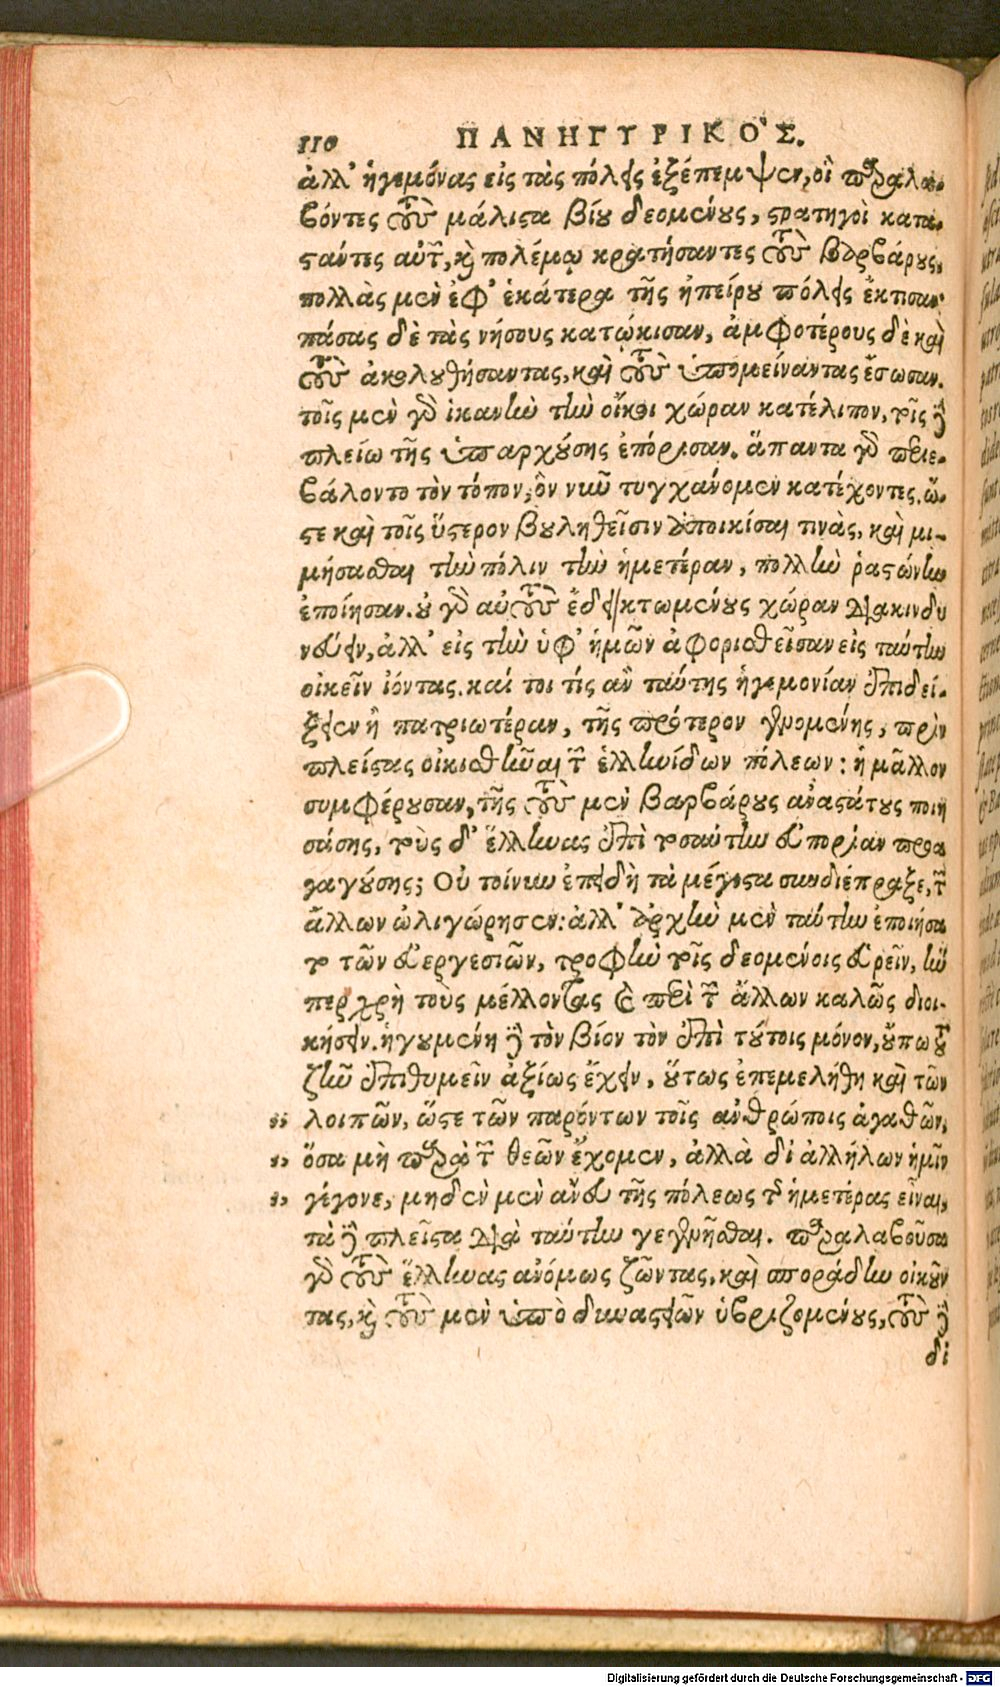 110 ΠΑΝΗΓΥΡΙΚΟ'Σ.
ἀλλ' ἡγεμόνας εἰς τὰς πόλεις ἐξέπεμψεν, οἳ παραλα-
βόντες τοὺς μάλιστα βίου δεομένους, στρατηγοὶ κατα-
στάντες αὐτῶν, καὶ πολέμῳ κρατήσαντες τοὺς βαρβάρους,
πολλὰς μὲν ἐφ' ἑκάτερα τῆς ἠπείρου πόλεις ἔκτισαν·
πάσας δὲ τὰς νήσους κατῴκισαν, ἀμφοτέρους δὲ καὶ
τοὺς ἀκολουθήσαντας, καὶ τοὺς ὑπομείναντας ἔσωσαν.
τοῖς μὲν γὰρ ἱκανὴν τὴν οἴκοι χώραν κατέλιπον, τοῖς δὲ
πλείω τῆς ὑπαρχούσης ἐπόρισαν. ἅπαντα γὰρ περιε-
βάλοντο τὸν τόπον, ὃν νῦν τυγχάνομεν κατέχοντες. ὥ-
στε καὶ τοῖς ὕστερον βουληθεῖσιν ἀποικίσαι τινὰς, καὶ μι-
μήσασθαι τὴν πόλιν τὴν ἡμετέραν, πολλὴν ῥαστώνην
ἐποίησαν. οὐ γὰρ αὐτοὺς ἔδει κτωμένους χώραν διακινδυ
νεύειν, ἀλλ' εἰς τὴν ὑφ' ἡμῶν ἀφορισθεῖσαν εἰς ταύτην
οἰκεῖν ἰόντας. καί τοι τίς ἂν ταύτης ἡγεμονίαν ἐπιδεί-
ξειεν ἢ πατριωτέραν, τῆς πρότερον γενομένης, πρὶν
πλείστας οἰκισθῆναι τῶν ἑλληνίδων πόλεων: ἢ μᾶλλον
συμφέρουσαν, τῆς τοὺς μὲν βαρβάρους ἀναστάτους ποιη
σάσης, τοὺς δ' ἕλληνας ἐπὶ τοσαύτην εὐπορίαν προα
γαγούσης; Οὐ τοίνυν ἐπειδὴ τὰ μέγιστα συνδιέπραξε, τῶν
ἄλλων ὠλιγώρησεν: ἀλλ' ἀρχὴν μὲν ταύτην ἐποιήσα
το τῶν εὐεργεσιῶν, τροφὴν τοῖς δεομένοις εὑρεῖν, ἥν
περ χρὴ τοὺς μέλλοντας καὶ περὶ τῶν ἄλλων καλῶς διοι-
κήσειν. ἡγουμένη δὲ τὸν βίον τὸν ἐπὶ τούτοις μόνον, οὔπω τοῦ
ζῆν ἐπιθυμεῖν ἀξίως ἔχειν, οὕτως ἐπεμελήθη καὶ τῶν
„ λοιπῶν, ὥστε τῶν παρόντων τοῖς ἀνθρώποις ἀγαθῶν,
„ ὅσα μὴ παρὰ τῶν θεῶν ἔχομεν, ἀλλὰ δι' ἀλλήλων ἡμῖν
„ γέγονε, μηδὲν μὲν ἄνευ τῆς πόλεως τῆς ἡμετέρας εἶναι,
τὰ δὲ πλεῖστα διὰ ταύτην γεγενῆσθαι. παραλαβοῦσα
γὰρ τοὺς ἕλληνας ἀνόμως ζῶντας, καὶ σποράδην οἰκοῦν
τας, καὶ τοὺς μὲν ὑπὸ δυναστειῶν ὑβριζομένους, τοὺς δὲ
δι
Digitalisierung gefördert durch die Deutsche Forschungsgemeinschaft - DFG